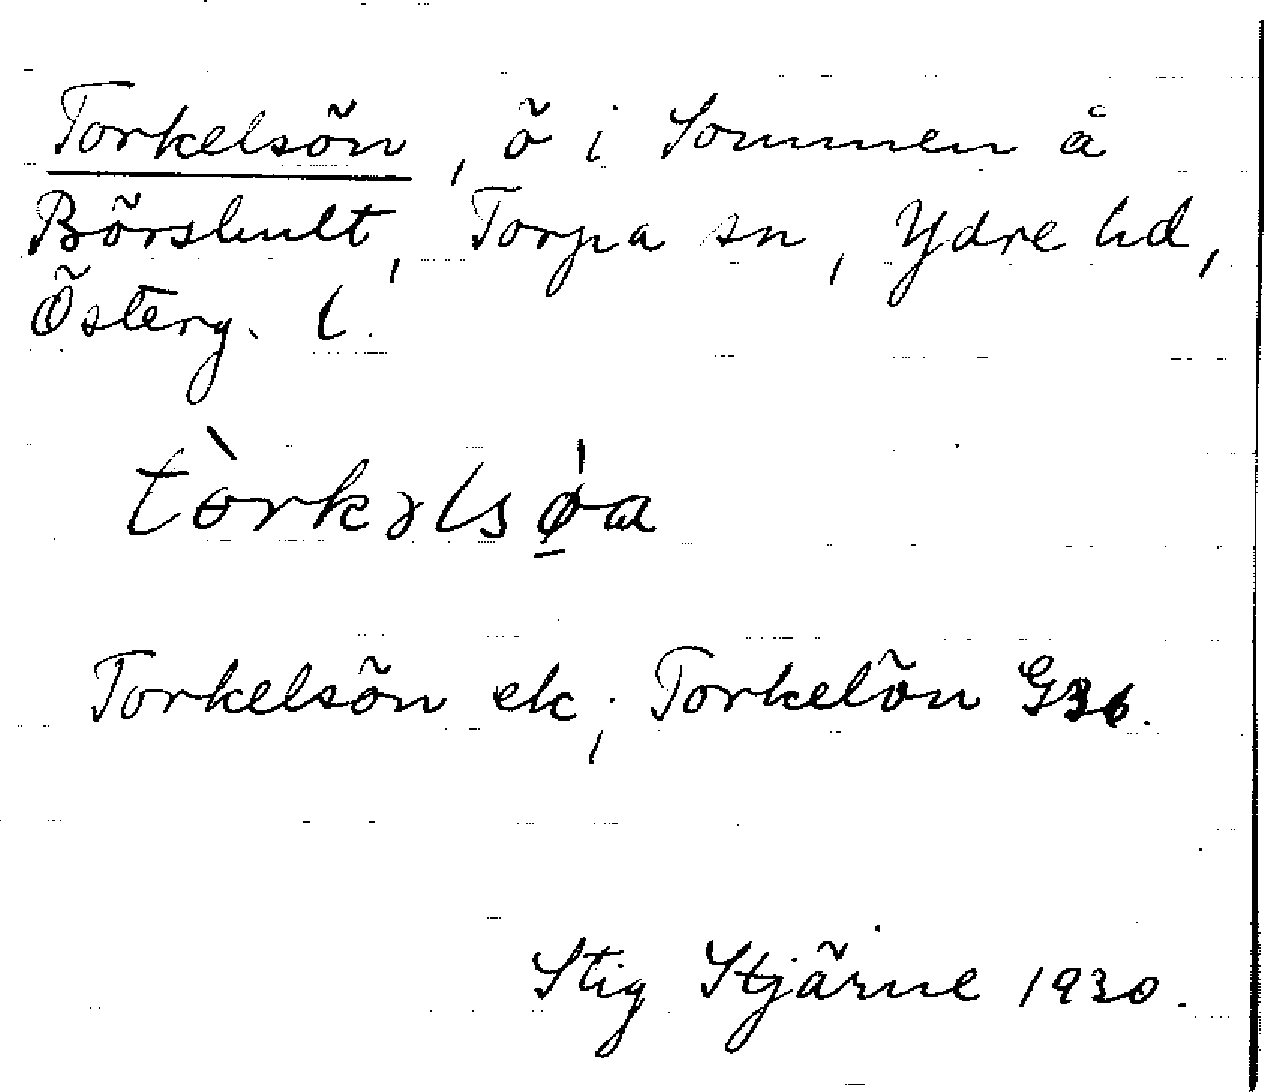 Torkelsön, ö i Sommen å
Börshult, Torpa sn, Ydre hd,
Österg. l.
tòrkəlsø̱̍a
Torkelsön ek; Torkelön G36.
Stig Stjärne 1930.